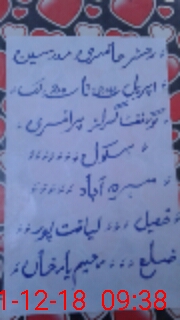 رجسٹر حاضری مدرسین
اپریل تا
گورنمنٹ گرلز پرائمری
سکول
آباد
تحصیل لیاقت پور
ضلع رحیم یار خاں
1-12-18 09:38